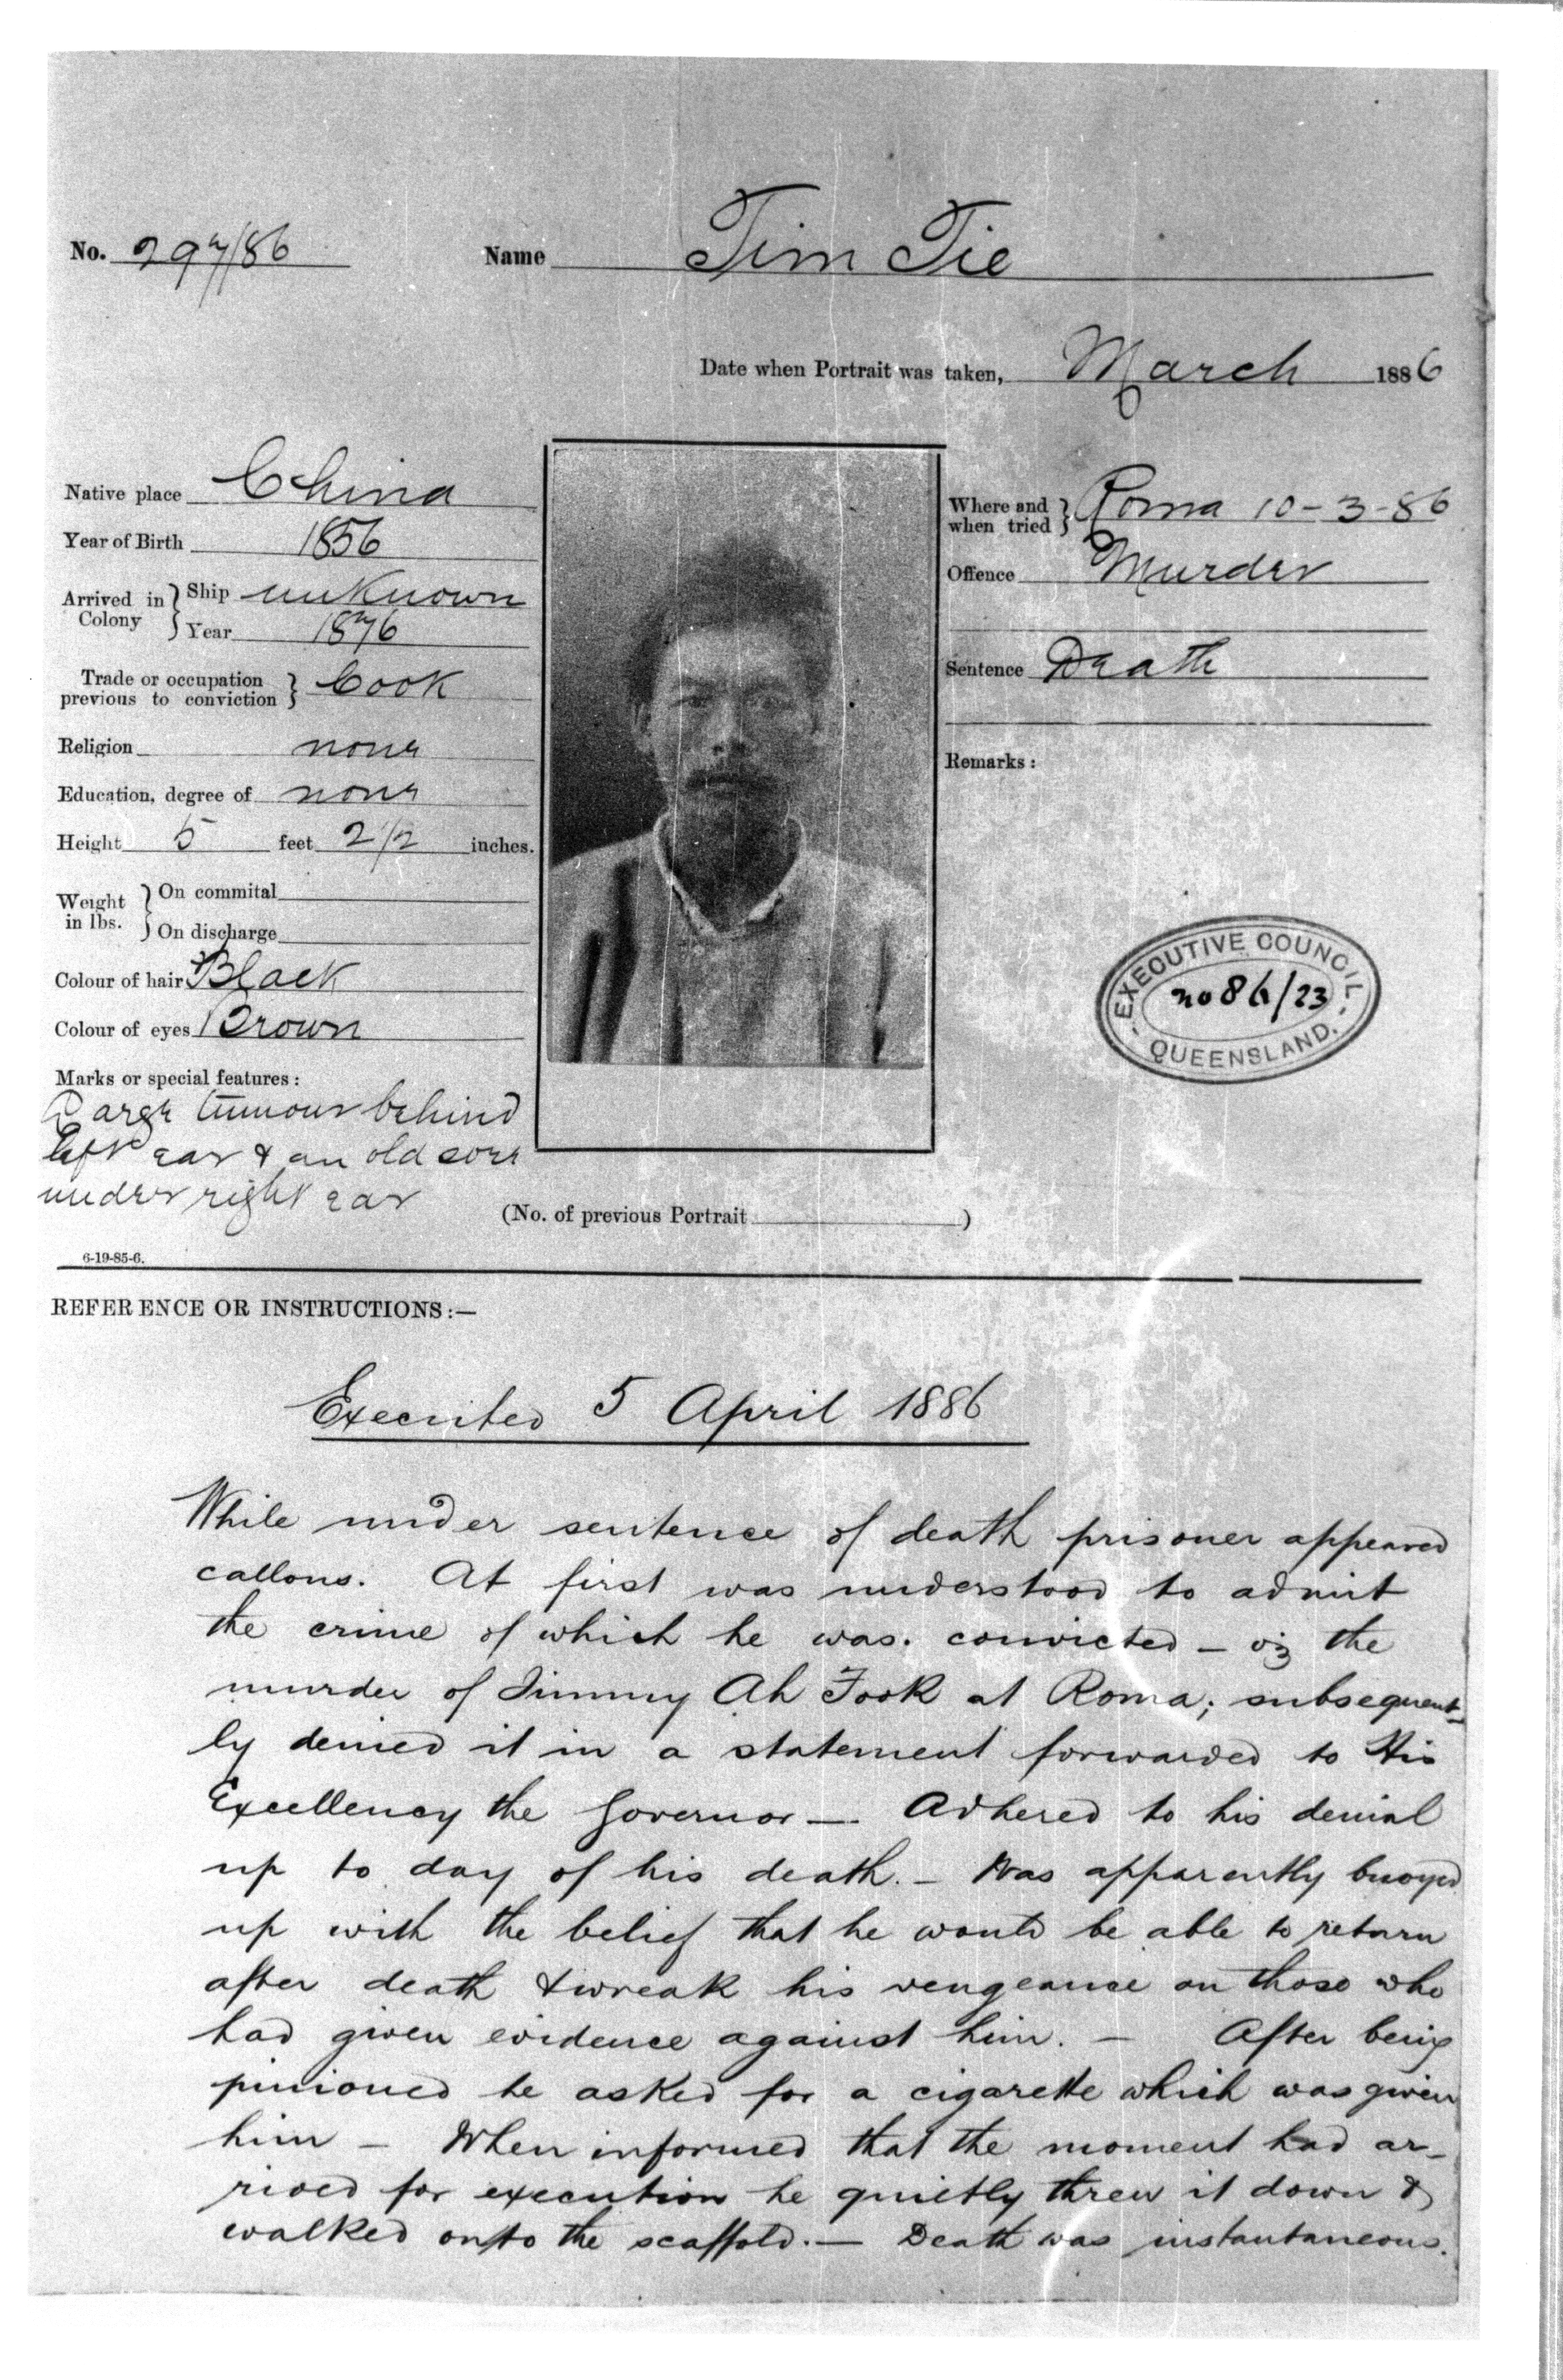 No. 297/86 Name Tim Tie
Date when Portrait was taken, March 1886
Native place China
Year of Birth 1856
Arrived in Colony } Ship unknown
Year 1876
Trade or occupation previous to conviction } Cook
Religion none
Education, degree of none
Height 5 feet 2 1/2 inches.
Weight in lbs. } On commital
On discharge
Colour of hair Black
Colour of eyes Brown
Marks or special features:
Large tumour behind
left ear & an old sore
under right ear
Where and when tried } Roma 10-3-86
Offence Murder
Sentence Death
Remarks:
EXECUTIVE COUNCIL
no 86/23
QUEENSLAND.
(No. of previous Portrait )
6-19-85-6.
REFERENCE OR INSTRUCTIONS:—
Executed 5 April 1886
While under sentence of death prisoner appeared
callous. At first was understood to admit
the crime of which he was. convicted – viz the
murder of Jimmy Ah Fook at Roma; subsequent-
ly denied it in a statement forwarded to His
Excellency the Governor —. Adhered to his denial
up to day of his death. – Was apparently buoyed
up with the belief that he would be able to return
after death & wreak his vengeance on those who
had given evidence against him. — After being
pinioned he asked for a cigarette which was given
him – When informed that the moment had ar-
rived for execution he quietly threw it down &
walked onto the scaffold. — Death was instantaneous.